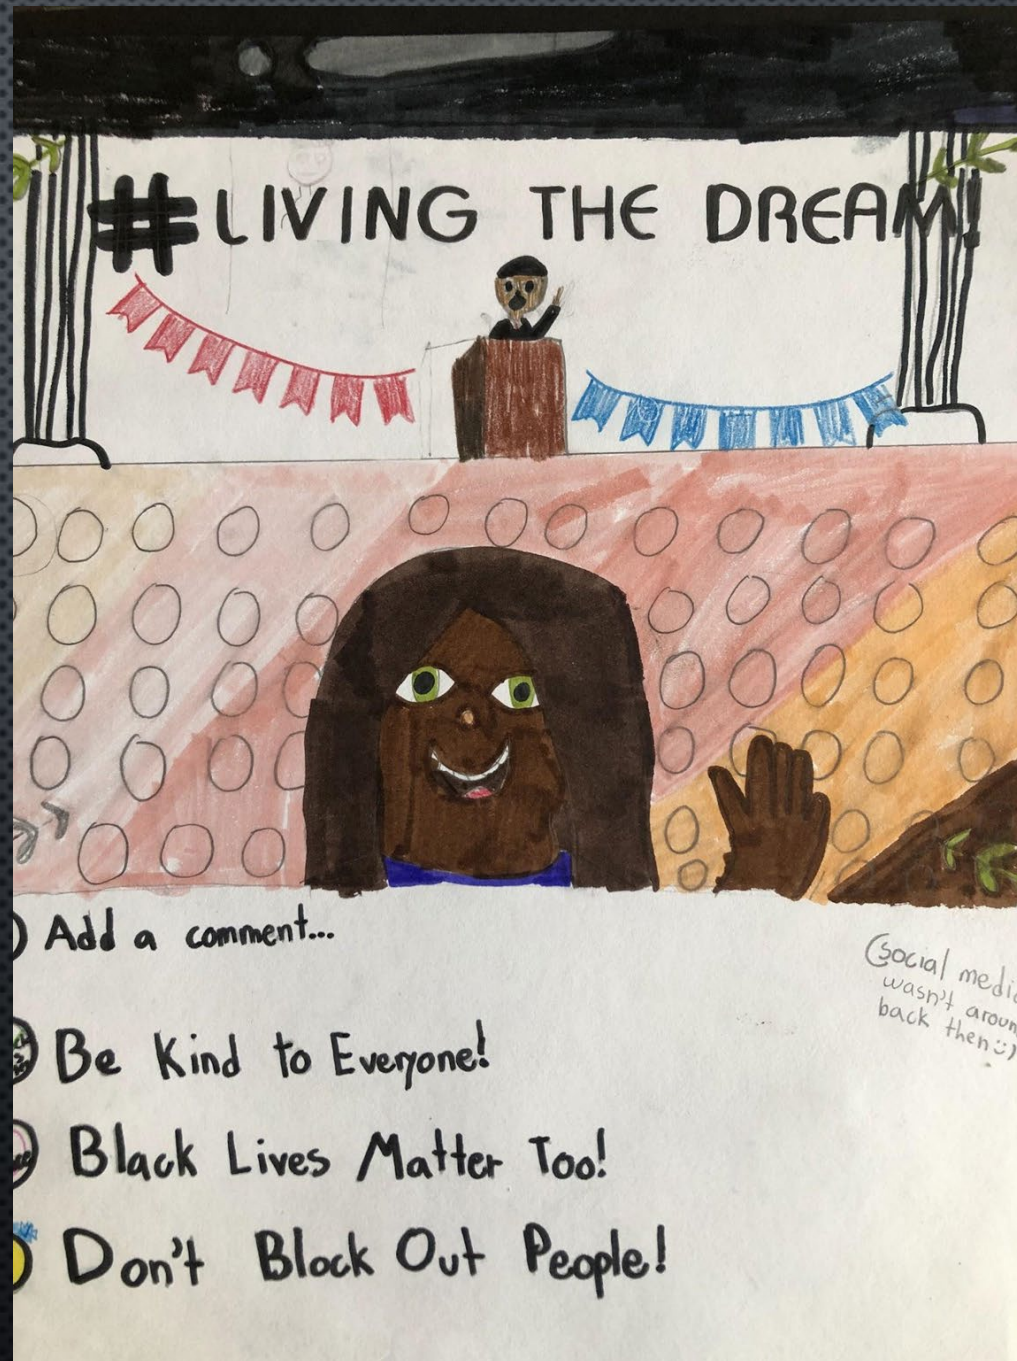 #LIVING THE DREAM!
Add a comment...
(social media
wasn't aroun
back then :)
Be Kind to Everyone!
Black Lives Matter Too!
Don't Block Out People!